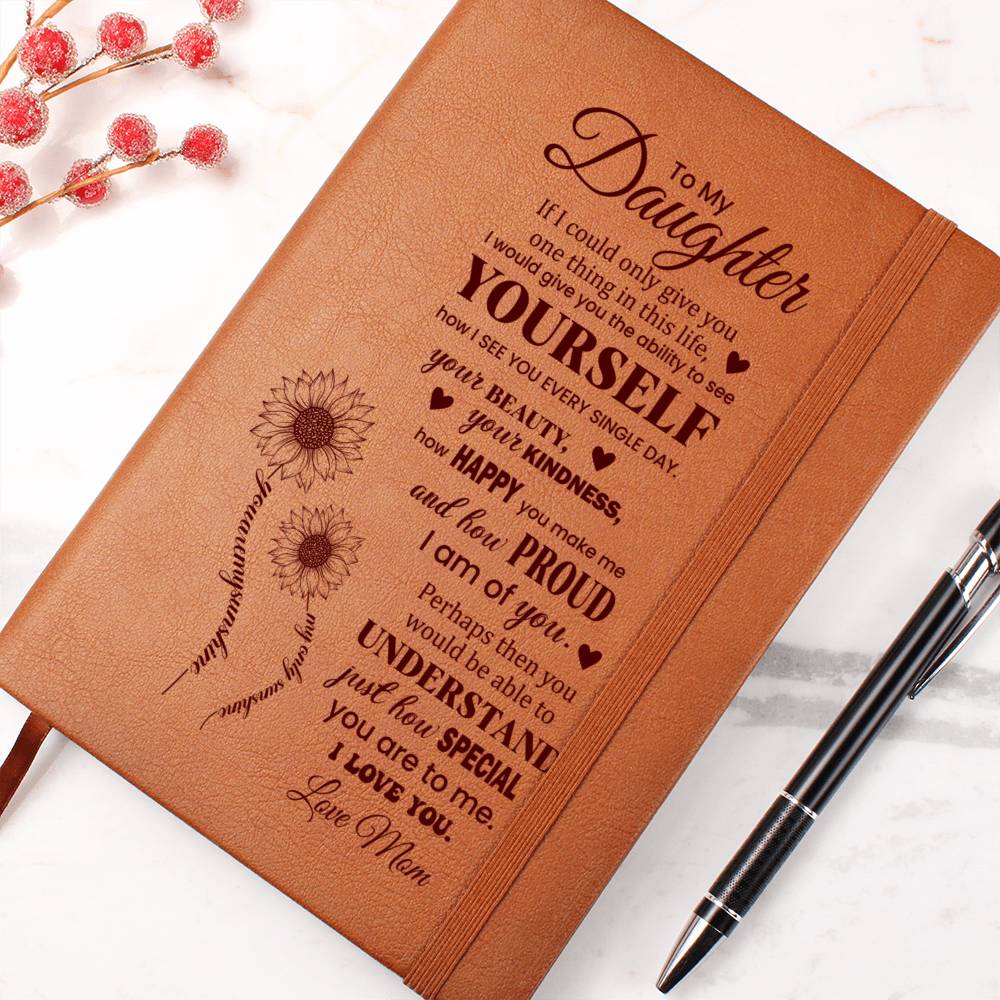 To My
Daughter
If I could only give you
one thing in this life,
I would give you the ability to see
YOURSELF
how I SEE YOU EVERY SINGLE DAY.
your BEAUTY,
your KINDNESS,
how HAPPY you make me
and how PROUD
I am of you.
Perhaps then you
would be able to
UNDERSTAND
just how SPECIAL
you are to me.
I LOVE YOU.
Love Mom
you are my sunshine
my only sunshine